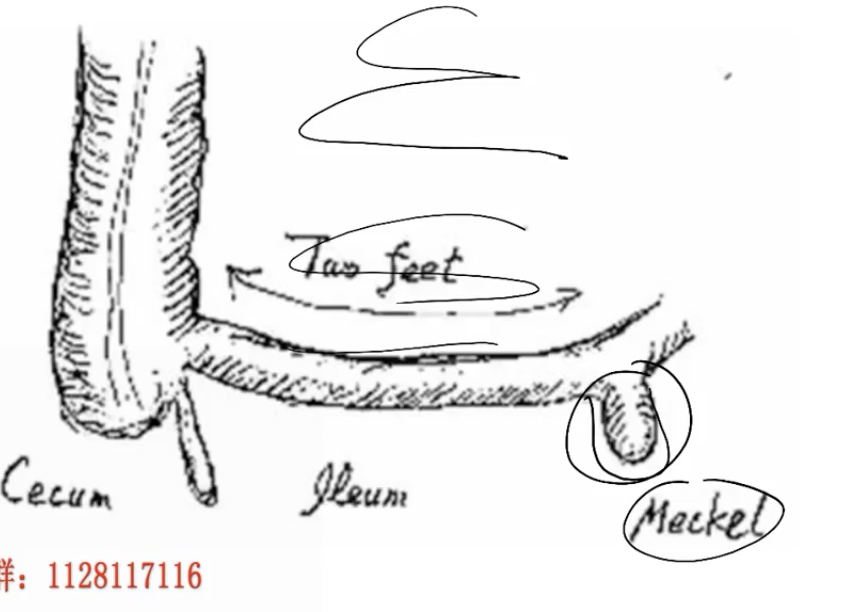 Two feet
Cecum
Ileum
Meckel
群：1128117116